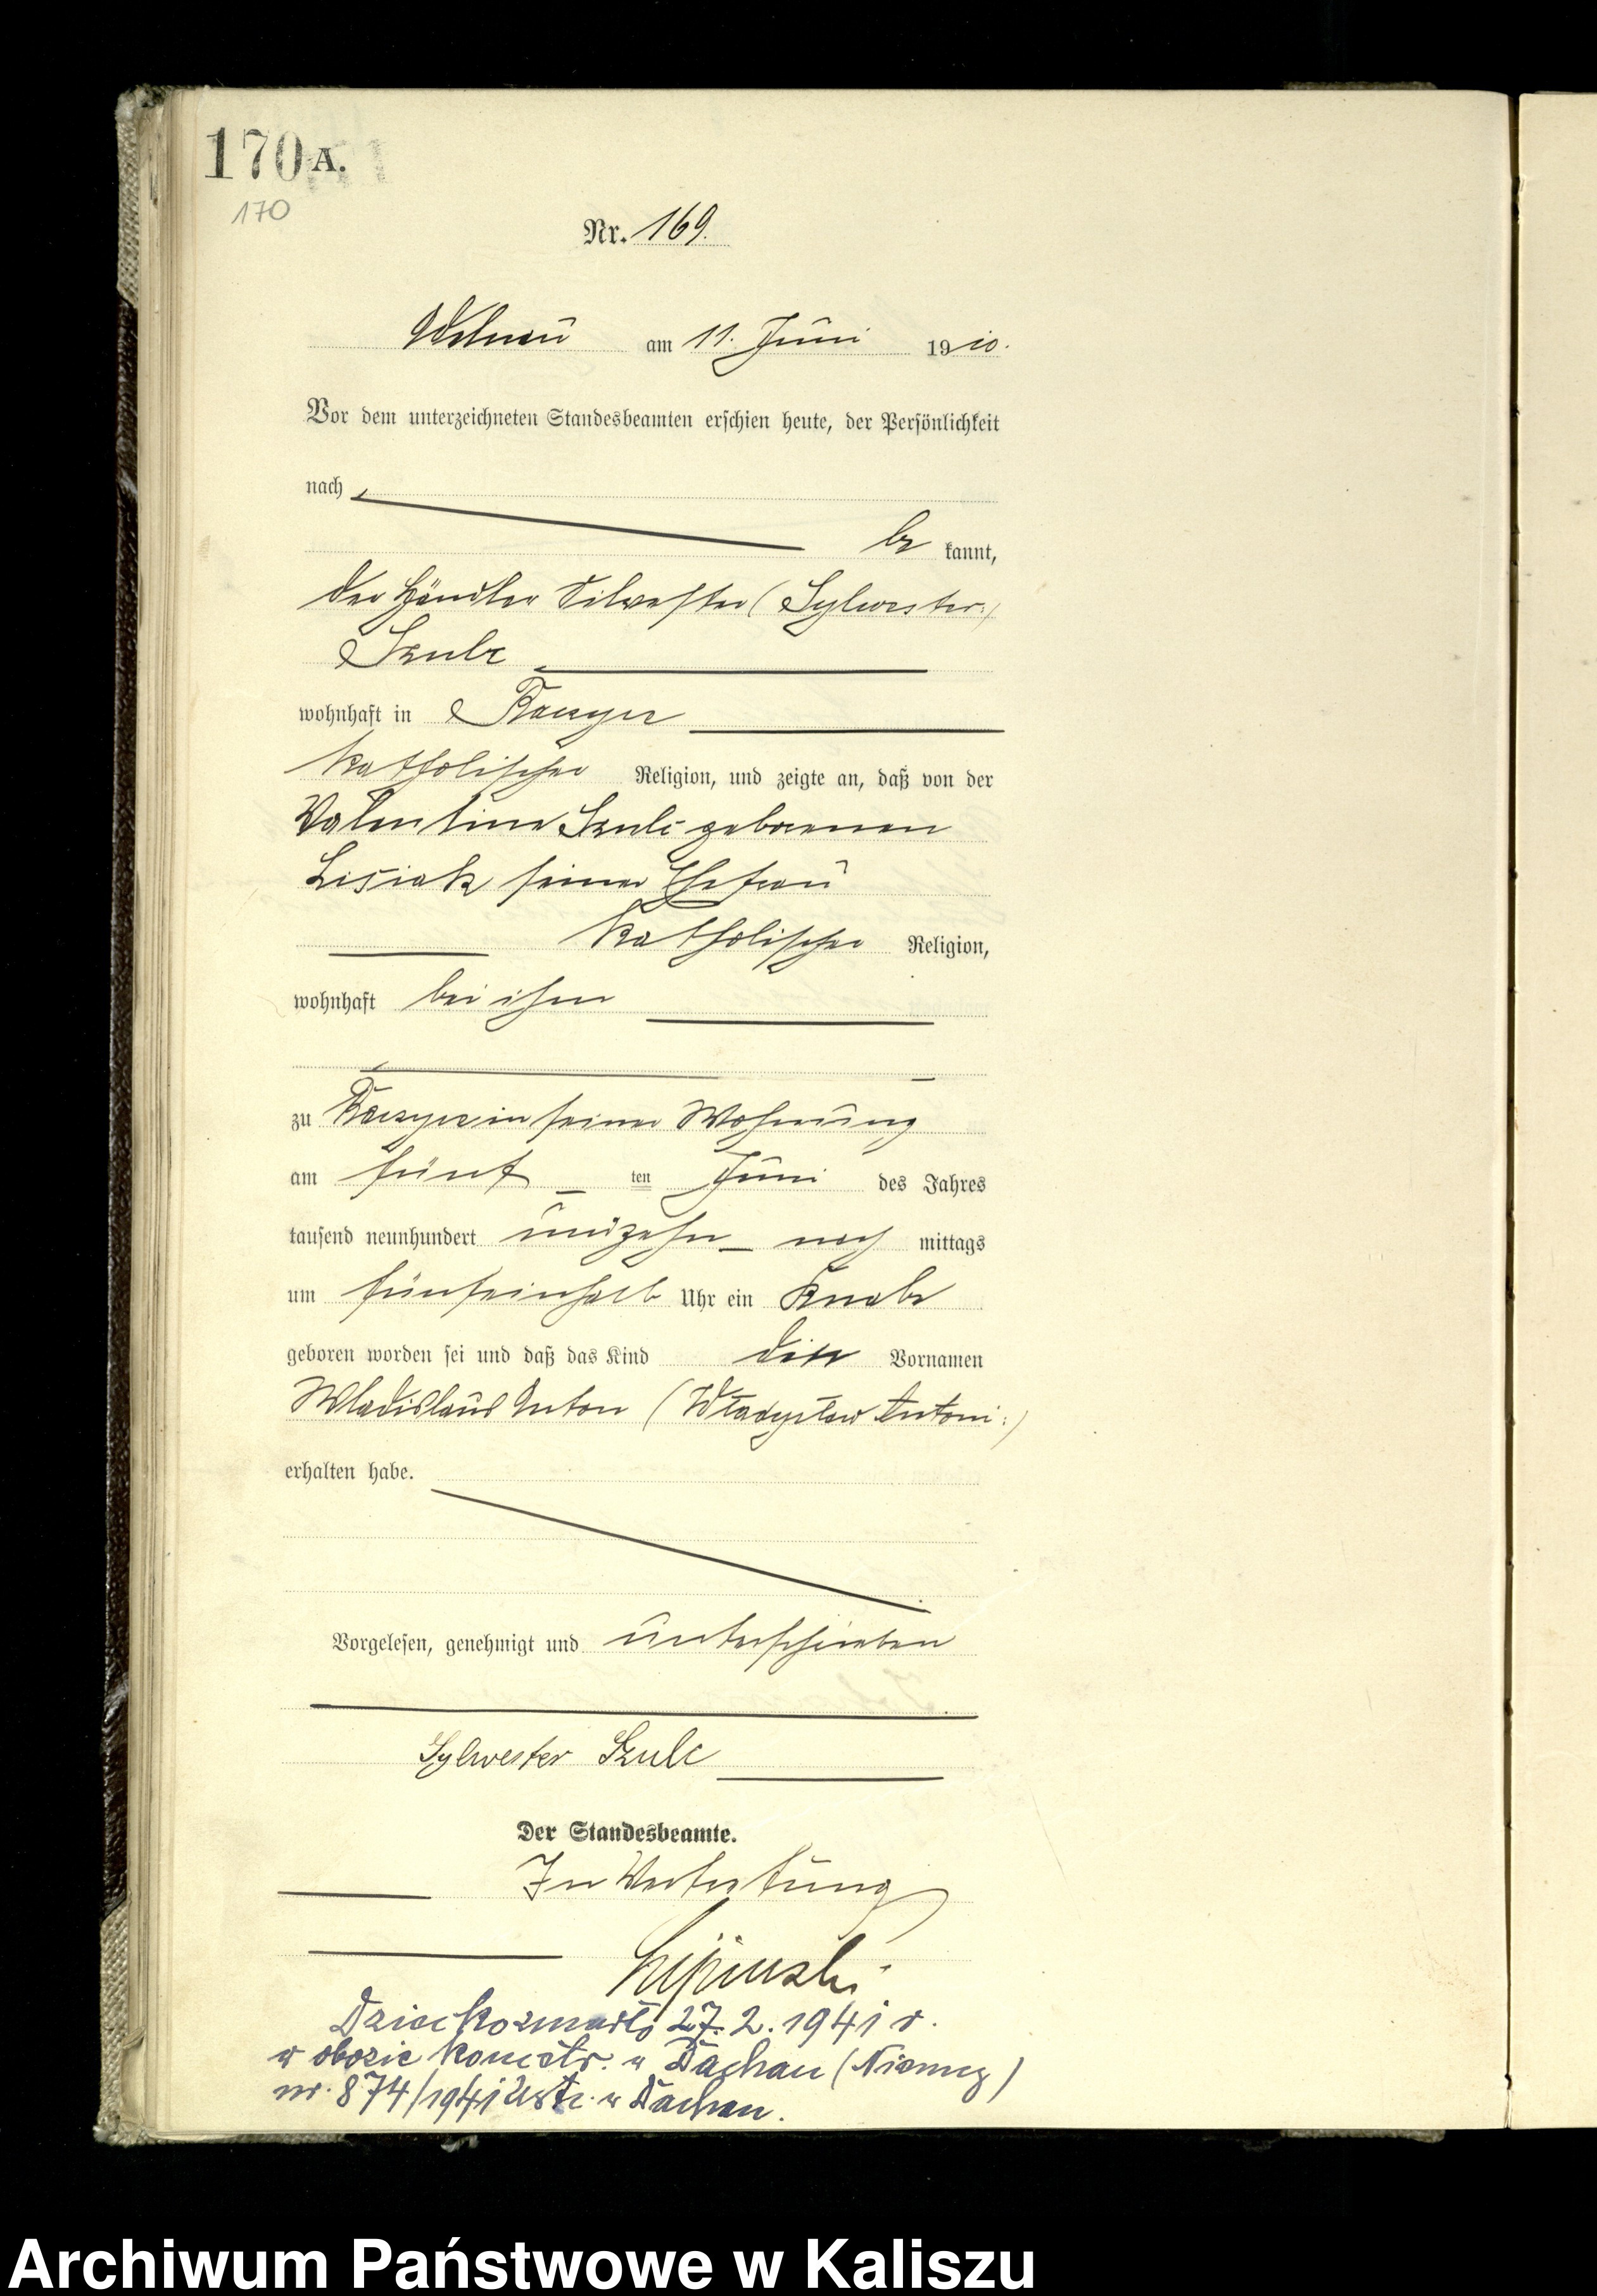 170 A.
170
Nr. 169.
Adelnau am 11. Juni 1910.
Vor dem unterzeichneten Standesbeamten erschien heute, der Persönlichkeit
nach
be kannt,
der Händler Silvester (Sylwester:)
Szulc
wohnhaft in Raczyce
katholischer Religion, und zeigte an, daß von der
Valentine Szulc geborenen
Lisiak seiner Ehefrau
katholischer Religion,
wohnhaft bei ihm
zu Raczyce in seiner Wohnung
am fünf ten Juni des Jahres
tausend neunhundert und zehn nach mittags
um fünfeinhalb Uhr ein Knabe
geboren worden sei und daß das Kind die Vornamen
Wladislaus Anton (Władysław Antoni:)
erhalten habe.
Vorgelesen, genehmigt und unterschrieben
Sylwester Szulc
Der Standesbeamte.
In Vertretung
Dziecko zmarło 27.2.1941 r.
w obozie koncetr. w Dachau (Niemcy)
nr. 874/1941 w Dachau.
Archiwum Państwowe w Kaliszu